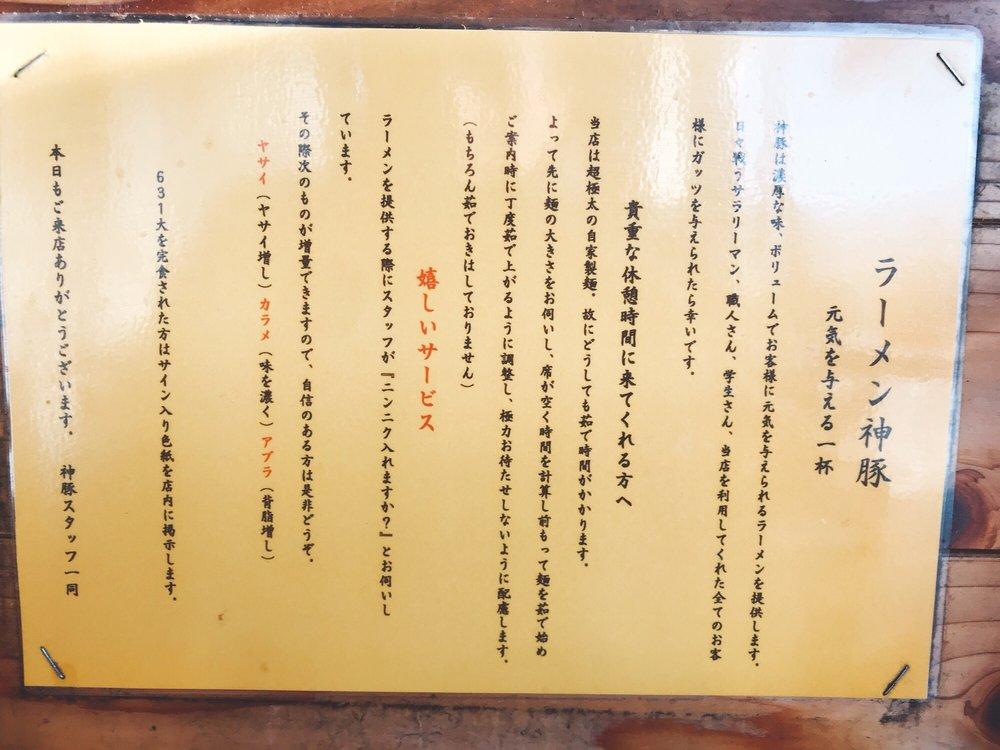 ラーメン神豚
元気を与える一杯
神豚は濃厚な味、ボリュームでお客様に元気を与えられるラーメンを提供します。
日々戦うサラリーマン、職人さん、学生さん、当店を利用してくれた全てのお客
様にガッツを与えられたら幸いです。
貴重な休憩時間に来てくれる方へ
当店は超極太の自家製麺。故にどうしても茹で時間がかかります。
よって先に麺の大きさをお伺いし、席が空く時間を計算し前もって麺を茹で始め
ご案内時に丁度茹で上がるように調整し、極力お待たせしないように配慮します。
(もちろん茹でおきはしておりません)
嬉しいサービス
ラーメンを提供する際にスタッフが『ニンニク入れますか?』とお伺いし
ています。
その際次のものが増量できますので、自信のある方は是非どうぞ。
ヤサイ(ヤサイ増し)カラメ(味を濃く)アブラ(背脂増し)
631大を完食された方はサイン入り色紙を店内に掲示します。
本日もご来店ありがとうございます。 神豚スタッフ一同